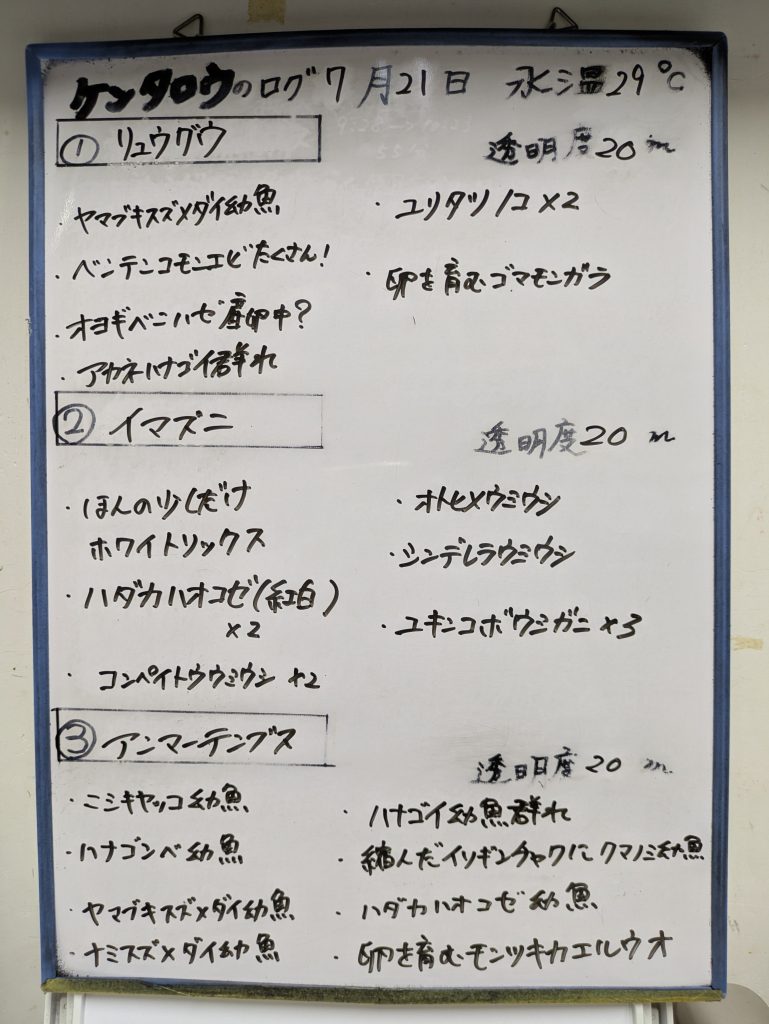 ケンタロウのログ 7月21日 水温29℃
① リュウグウ 透明度20m
・ヤマブキスズメダイ幼魚
・ベンテンコモンエビたくさん!
・オヨギベニハゼ産卵中?
・アカネハナゴイ群れ
・ユリタツノコ×2
・卵を育むゴマモンガラ
② イマズニ 透明度20m
・ほんの少しだけ
ホワイトソックス
・ハダカハオコゼ(紅白)
×2
・コンペイトウウミウシ ×2
・オトヒメウミウシ
・シンデレラウミウシ
・ユキンコボウシガニ ×3
③ アンマーテングス 透明度20m
・ニシキヤッコ幼魚
・ハナゴンベ幼魚
・ヤマブキスズメダイ幼魚
・ナミスズメダイ幼魚
・ハナゴイ幼魚群れ
・縮んだイソギンチャクにクマノミ幼魚
・ハダカハオコゼ幼魚
・卵を育むモンツキカエルウオ